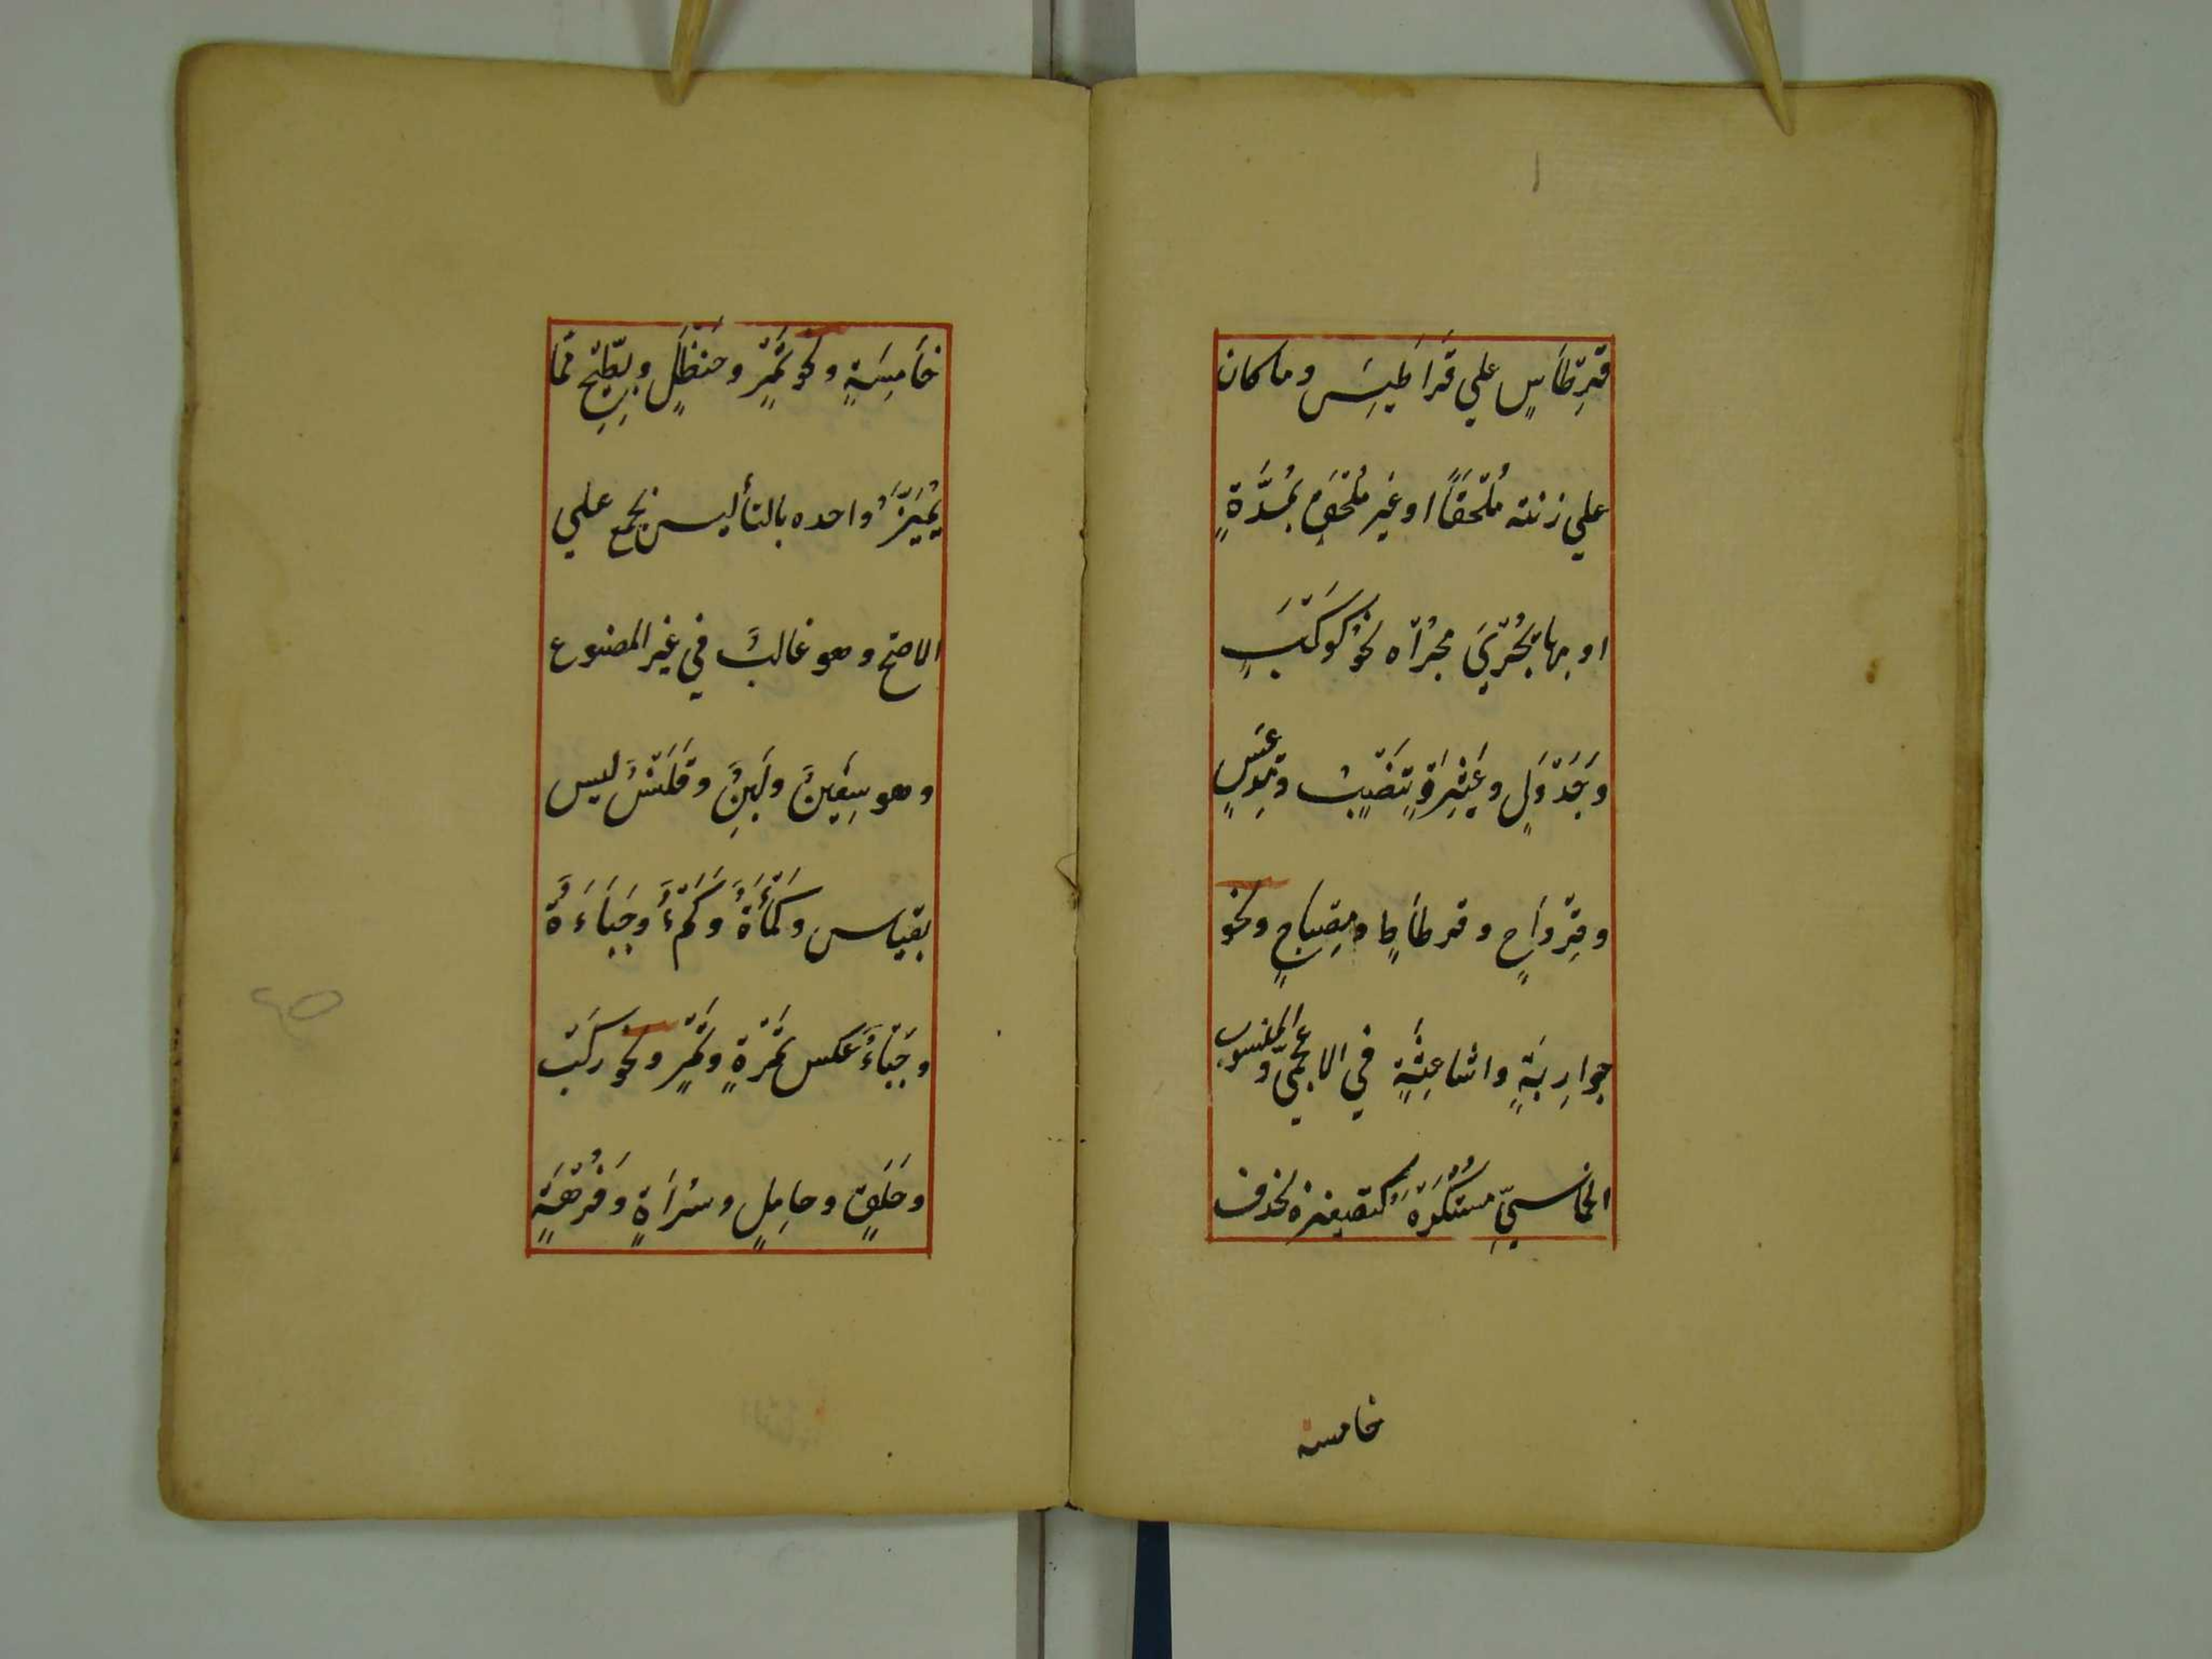 قِرْطَاسٍ علي قَرَاطِيسَ وما كان
علي زنته مُلْحَقًا او غير مُلْحَقٍ بمُدَّةٍ
او بها يَجْرِي مجراه نحو كَوْكَبٍ
وَجَدْوَلٍ وعِثْيَرٍ وتَنْضُبٍ ومِدْعَسٍ
وقِرْوَاحٍ وقرطاطٍ ومِصْبَاحٍ ونحو
جوارِبَةٍ واشاعِثَةٍ في الاعجميّ والمنسوب
الخماسيّ مستكرَهٌ كتصغيره بحذف
خامسه
خَامِسِةٍ ونحو تَمْرٍ وحنظَلٍ وبِطِّيخٍ مما
يُمَيَّزُ واحده بالتا ليس بجمع علي
الاصح وهو غالبٌ في غير المصنوع
وهو سِفينٌ ولَبِنٌ وقَلَنْسٌ ليس
بقياس وكَمْأَةٌ وَكَمْءٌ وجَبْأَةٌ
وجَبْأٌ عكس تَمْرَةٍ وتَمْرٍ ونحو رَكْب
وحَلَقٍ وحامِلٍ وسَرَاةٍ وَفُرْهَةٍ